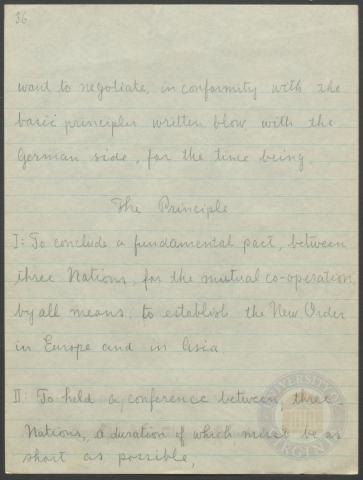 36
want to negotiate, in conformity with the
basic principles written blow with the
German side, for the time being.
The Principle
I: To conclude a fundamental pact, between
three Nations, for the mutual co-operation
by all means, to establish the New Order
in Europe and in Asia
II: To held a conference between three
Nations, a duration of which must be as
short as possible,
UNIVERSITY OF VIRGINIA